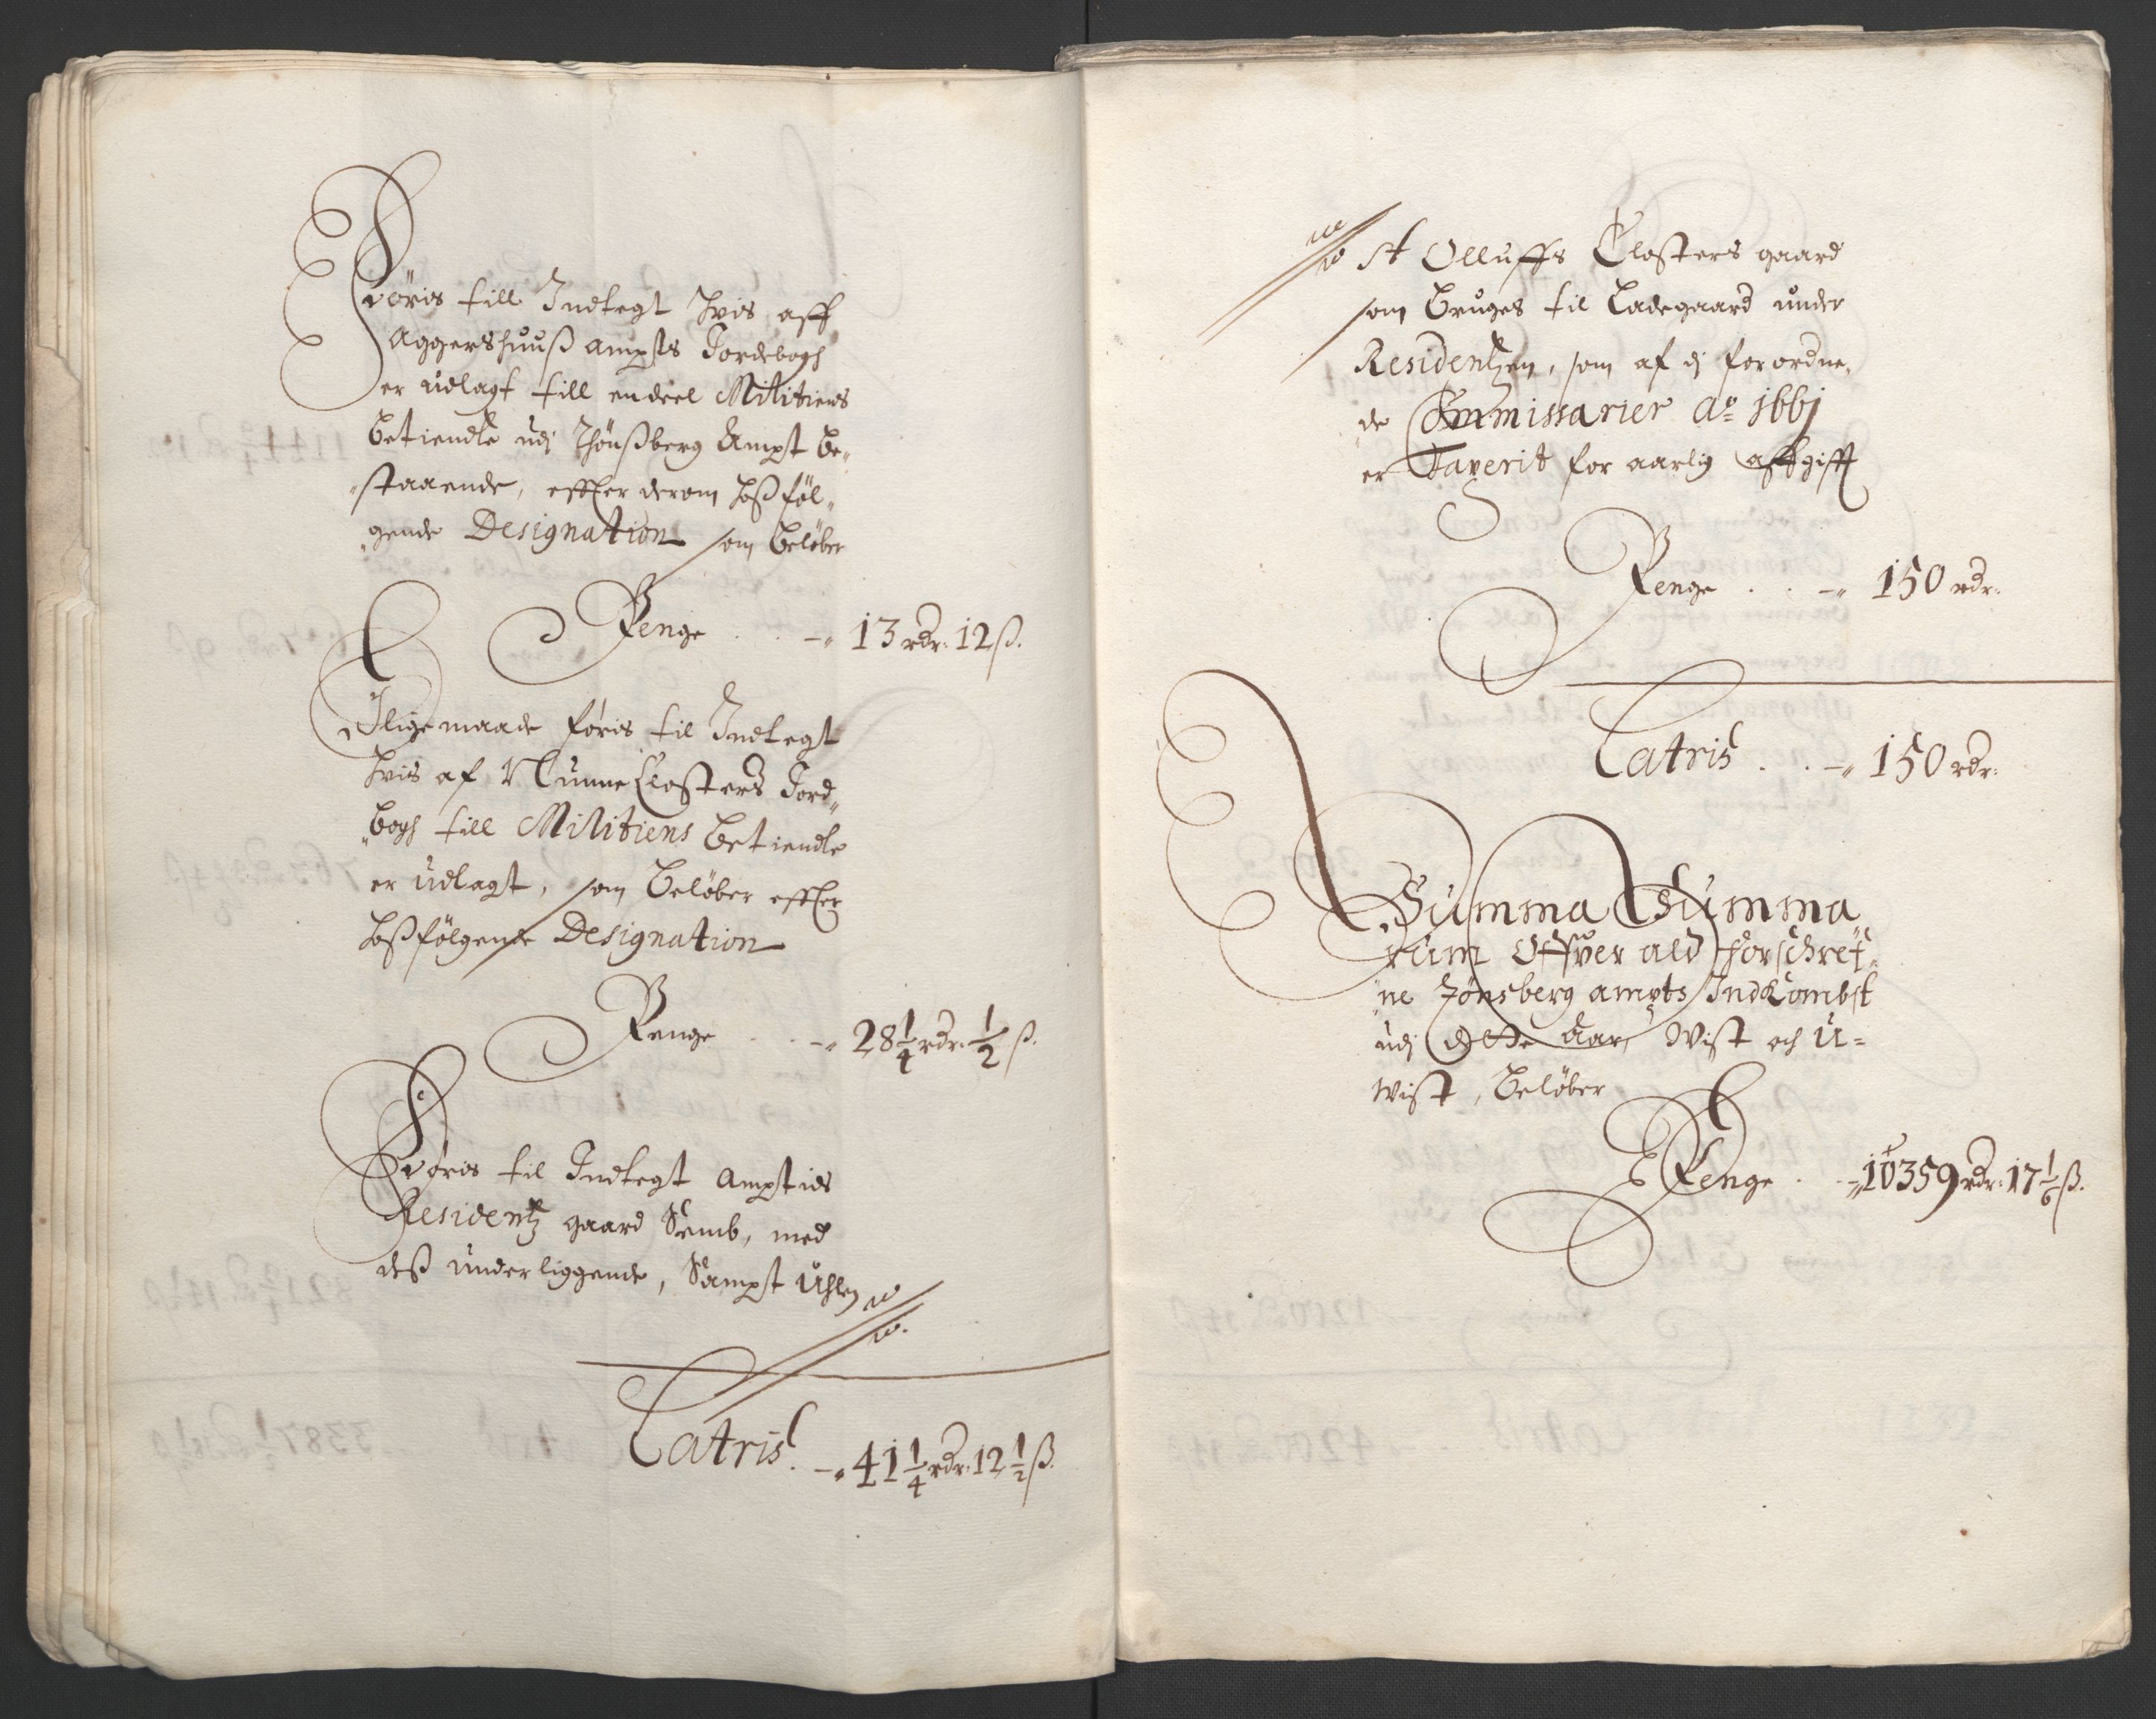 Föris till Indtegt hvis aff
Aggershuuß Ampts Jordebogh
er udlagt till endeel Militiens
betiendte udj Thönßberg Ampt be-
staaende, effter derom hoßföl-
gende Designation som belöber
Penge . . -" 13 rdr. 12 ß.
Iligemaade föris til Indtegt
hvis af Nunne Closters Jord-
bogh till Militiens betiendte
er udlagt, som belöber effter
hoßfölgende Designation
Penge . . -" 28 1/4 rdr. 1/2 ß.
Föris til Indtegt Amptids
Residentz gaard Semb, med
deß underliggende, Sampt Uhlen
Latris . -" 41 1/4 rdr. 12 1/2 ß.
St Olluffs Closters gaard
som bruges til Ladegaard under
Residentzen, som af dj forordne-
de Commissarier Ao 1661
er Taxerit for aarlig affgifft
Penge . . -" 150 rdr.
Latris . . -" 150 rdr.
Summa Summa
rum Offver ald forschref-
ne Tönsberg ampts Indkombst
udj dette Aar, Wist och U-
wist, belöber
Penge . -" 10359 rdr. 17 1/6 ß.